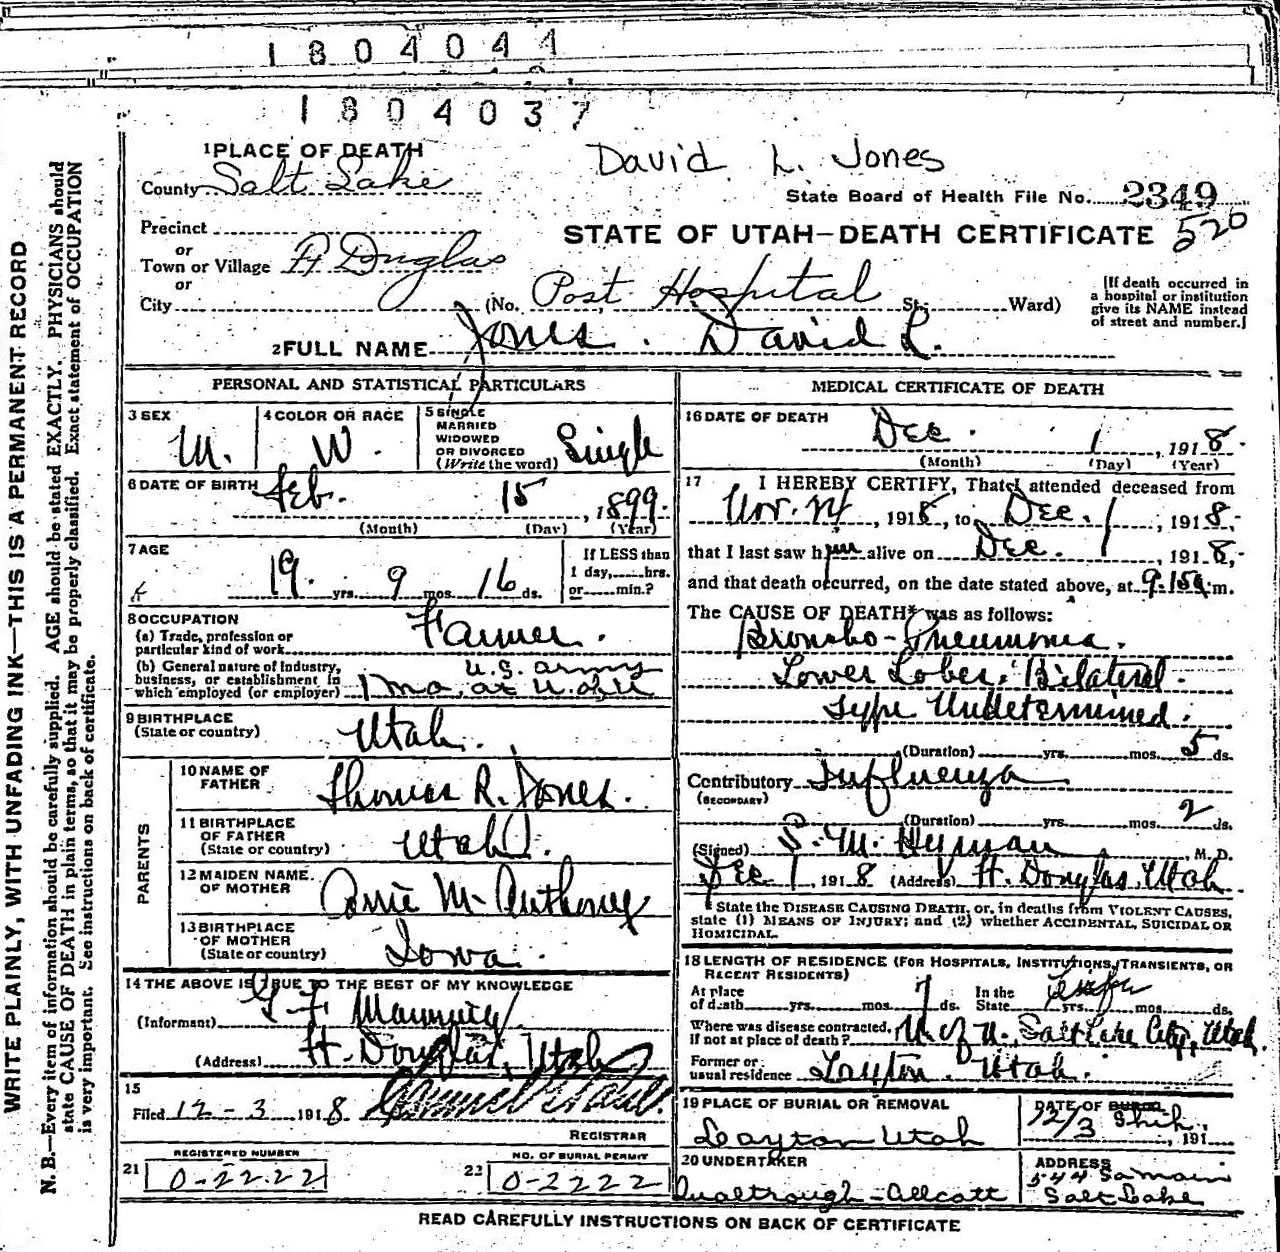 1804044
1804037
1 PLACE OF DEATH
David L. Jones
County Salt Lake
State Board of Health File No. 2349
520
Precinct
STATE OF UTAH—DEATH CERTIFICATE
or
Town or Village Ft Douglas
or
City (No. Post Hospital St. Ward)
[If death occurred in
a hospital or institution
give its NAME instead
of street and number.]
2 FULL NAME Jones. David L.
PERSONAL AND STATISTICAL PARTICULARS
3 SEX M.
4 COLOR OR RACE W.
5 SINGLE
MARRIED
WIDOWED
OR DIVORCED
(Write the word) Single
6 DATE OF BIRTH Feb. 15, 1899.
(Month) (Day) (Year)
7 AGE
19. yrs. 9 mos. 16 ds.
If LESS than
1 day,......hrs.
or......min.?
8 OCCUPATION
(a) Trade, profession or
particular kind of work Farmer.
(b) General nature of Industry,
business, or establishment in
which employed (or employer)
U.S. army
1 mo. at U. of U
9 BIRTHPLACE
(State or country) Utah.
PARENTS
10 NAME OF
FATHER Thomas R. Jones.
11 BIRTHPLACE
OF FATHER
(State or country) Utah.
12 MAIDEN NAME
OF MOTHER M. Anthony
13 BIRTHPLACE
OF MOTHER
(State or country) Iowa.
14 THE ABOVE IS TRUE TO THE BEST OF MY KNOWLEDGE
(Informant) G. F.
(Address) Ft. Douglas, Utah
15
Filed 12-3 1918
REGISTRAR
REGISTERED NUMBER
21 0-2222
NO. OF BURIAL PERMIT
22 0-2222
MEDICAL CERTIFICATE OF DEATH
16 DATE OF DEATH
Dec. 1, 1918.
(Month) (Day) (Year)
17 I HEREBY CERTIFY, That I attended deceased from
Nov. 24, 1918, to Dec. 1, 1918,
that I last saw him alive on Dec. 1, 1918,
and that death occurred, on the date stated above, at 9.15a m.
The CAUSE OF DEATH* was as follows:
Broncho-Pneumonia.
Lower Lobes. Bilateral.
Type Undetermined.
(Duration) yrs. mos. 5 ds.
Contributory Influenza
(SECONDARY)
(Duration) yrs. mos. 2 ds.
(Signed) S. M. Hyman, M. D.
Dec 1 1918 (Address) Ft. Douglas, Utah
* State the DISEASE CAUSING DEATH, or, in deaths from VIOLENT CAUSES,
state (1) MEANS OF INJURY; and (2) whether ACCIDENTAL, SUICIDAL OR
HOMICIDAL.
18 LENGTH OF RESIDENCE (FOR HOSPITALS, INSTITUTIONS, TRANSIENTS, OR
RECENT RESIDENTS)
At place
of death yrs. mos. 7 ds.
In the
State yrs. mos. ds.
Where was disease contracted,
if not at place of death? U. of U. Salt Lake City, Utah.
Former or
usual residence Layton. Utah.
19 PLACE OF BURIAL OR REMOVAL
Layton Utah
DATE OF BURIAL
12/3 Ship. 191
20 UNDERTAKER
Qualtrough-Allcott
ADDRESS
544 So main
Salt Lake
READ CAREFULLY INSTRUCTIONS ON BACK OF CERTIFICATE
WRITE PLAINLY, WITH UNFADING INK—THIS IS A PERMANENT RECORD
N. B.—Every item of information should be carefully supplied. AGE should be stated EXACTLY. PHYSICIANS should
state CAUSE OF DEATH in plain terms, so that it may be properly classified. Exact statement of OCCUPATION
is very important. See instructions on back of certificate.